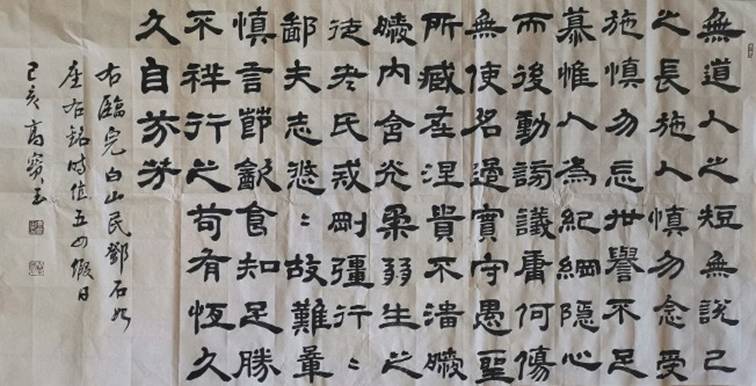 無道人之短無說己
之長施人慎勿念受
施慎勿忘世譽不足
慕惟人為紀綱隱心
而後動謗議庸何傷
無使名過實守愚聖
所臧在涅貴不淄曖
曖內含光柔弱生之
徒老氏戒剛彊行〻
鄙夫志悠〻故難量
慎言節飲食知足勝
不祥行之苟有恆久
久自芬芳
右臨完白山民鄧石如
座右銘時值五四假日
己亥高寶玉